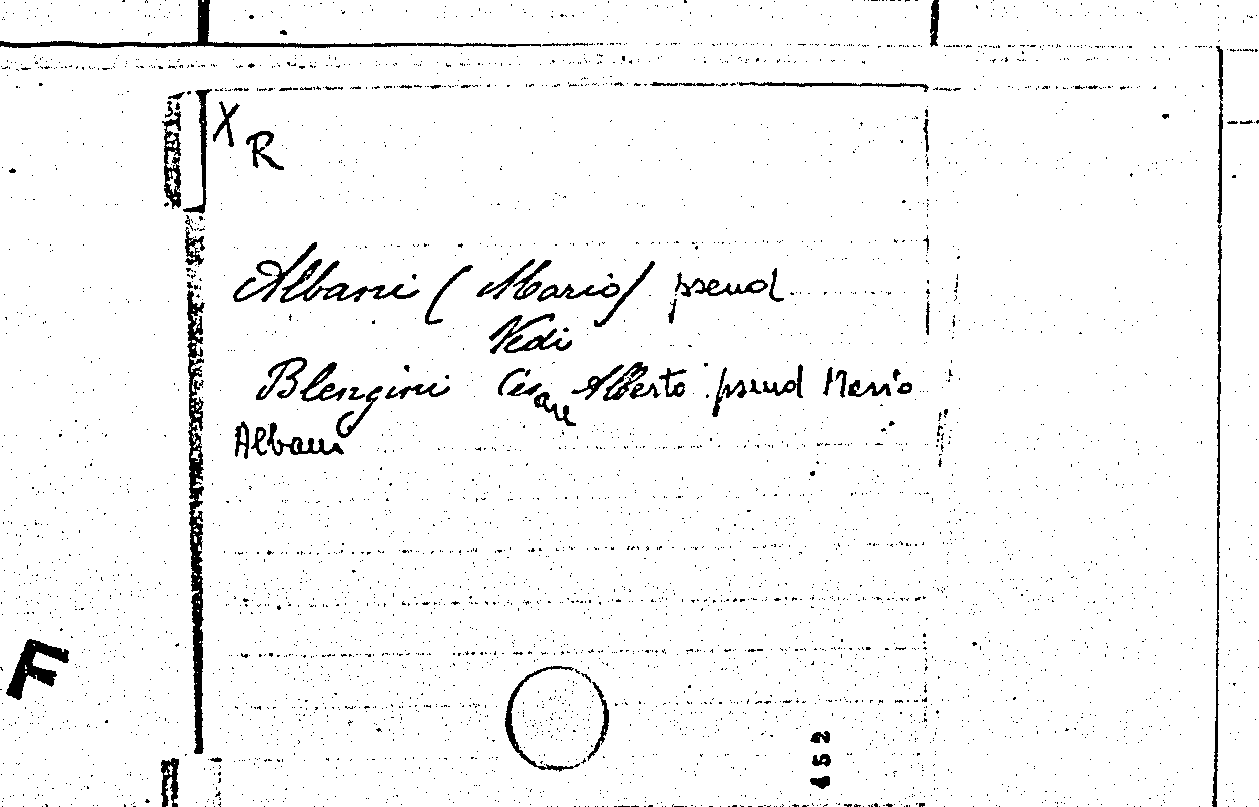 X
R
Albani (Mario) pseud
Vedi
Blengini Cesare Alberto pseud Mario
Albani
F
452